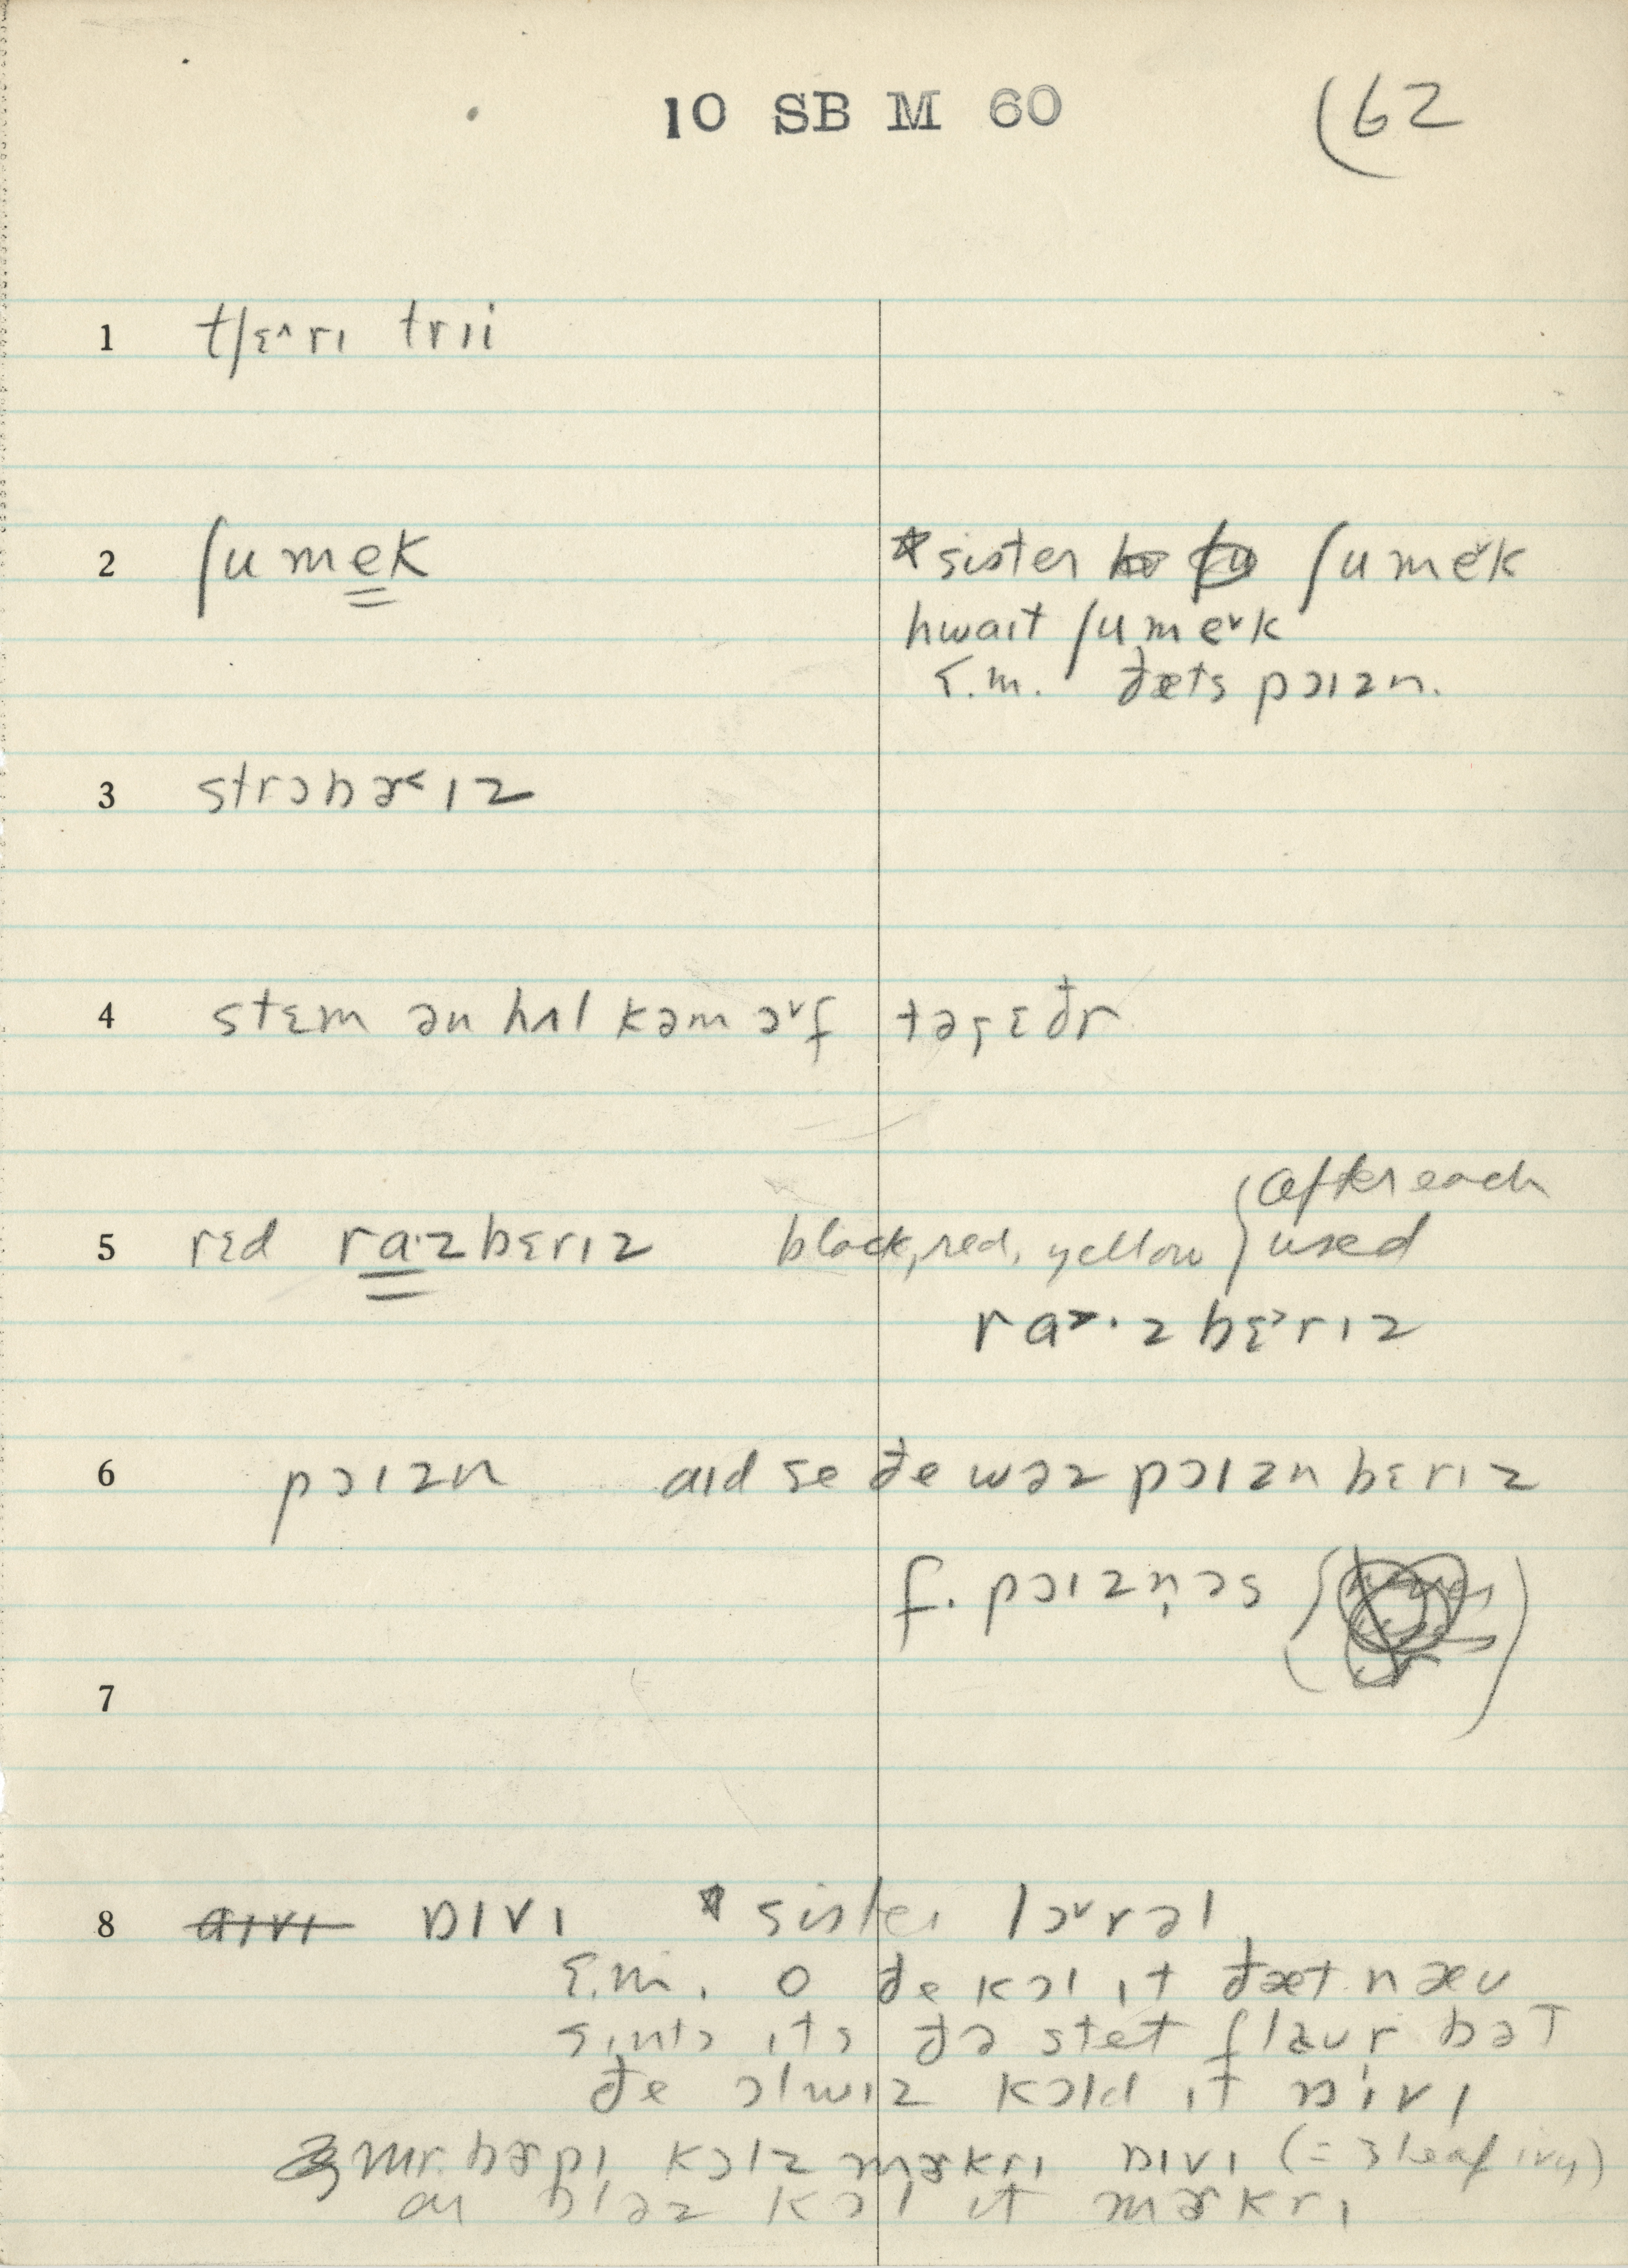 10 SB M 60 (62
1 tʃɛ^rɪ trɪi
2 ʃumek *sister ʃumeˇk
hwaɪt ʃumeˇk
s.m. ðæts pɔɪzn.
3 strɔbɚ˂ɪz
4 stɛm ən hʌl kəm ɔˇf təgɛðr
5 rɛd ra·zbɛrɪz black, red, yellow { after each
used
ra˃·zbɛ˃rɪz
6 pɔɪzn aɪd se ðe wəz pɔɪzn bɛrɪz
f. pɔɪzn̩əs
7
8 aɪvɪ ɒɪvɪ *sister lɔˇrəl
s.m. o ðe kɔl ɪt ðæt næu
sɪnts ɪts ðə stet flæur bət
ðe ɔlwɪz kɔld ɪt ɒɪvɪ
mr. bɚpɪ kɔlz mɚkrɪ ɒɪvɪ (= 3 leaf ivy)
kɔl ɪt mɚkrɪ